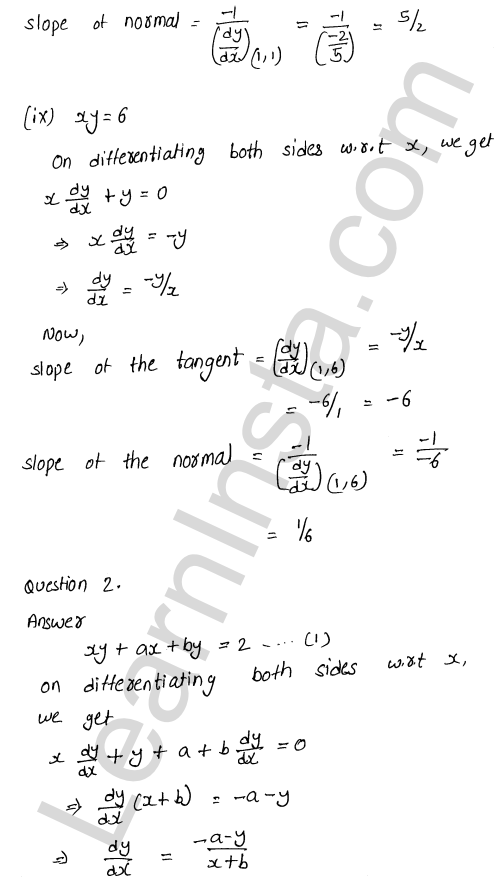 slope of normal = -1/(dy/dx)(1,1) = -1/(-2/5) = 5/2
(ix) xy = 6
On differentiating both sides w.r.t x, we get
x dy/dx + y = 0
⇒ x dy/dx = -y
⇒ dy/dx = -y/x
Now,
slope of the tangent = (dy/dx)(1,6) = -y/x
= -6/1 = -6
slope of the normal = -1/(dy/dx)(1,6) = -1/-6
= 1/6
Question 2.
Answer
xy + ax + by = 2 ---- (1)
on differentiating both sides w.r.t x,
we get
x dy/dx + y + a + b dy/dx = 0
⇒ dy/dx (x+b) = -a-y
⇒ dy/dx = -a-y/x+b
LearnInsta.com